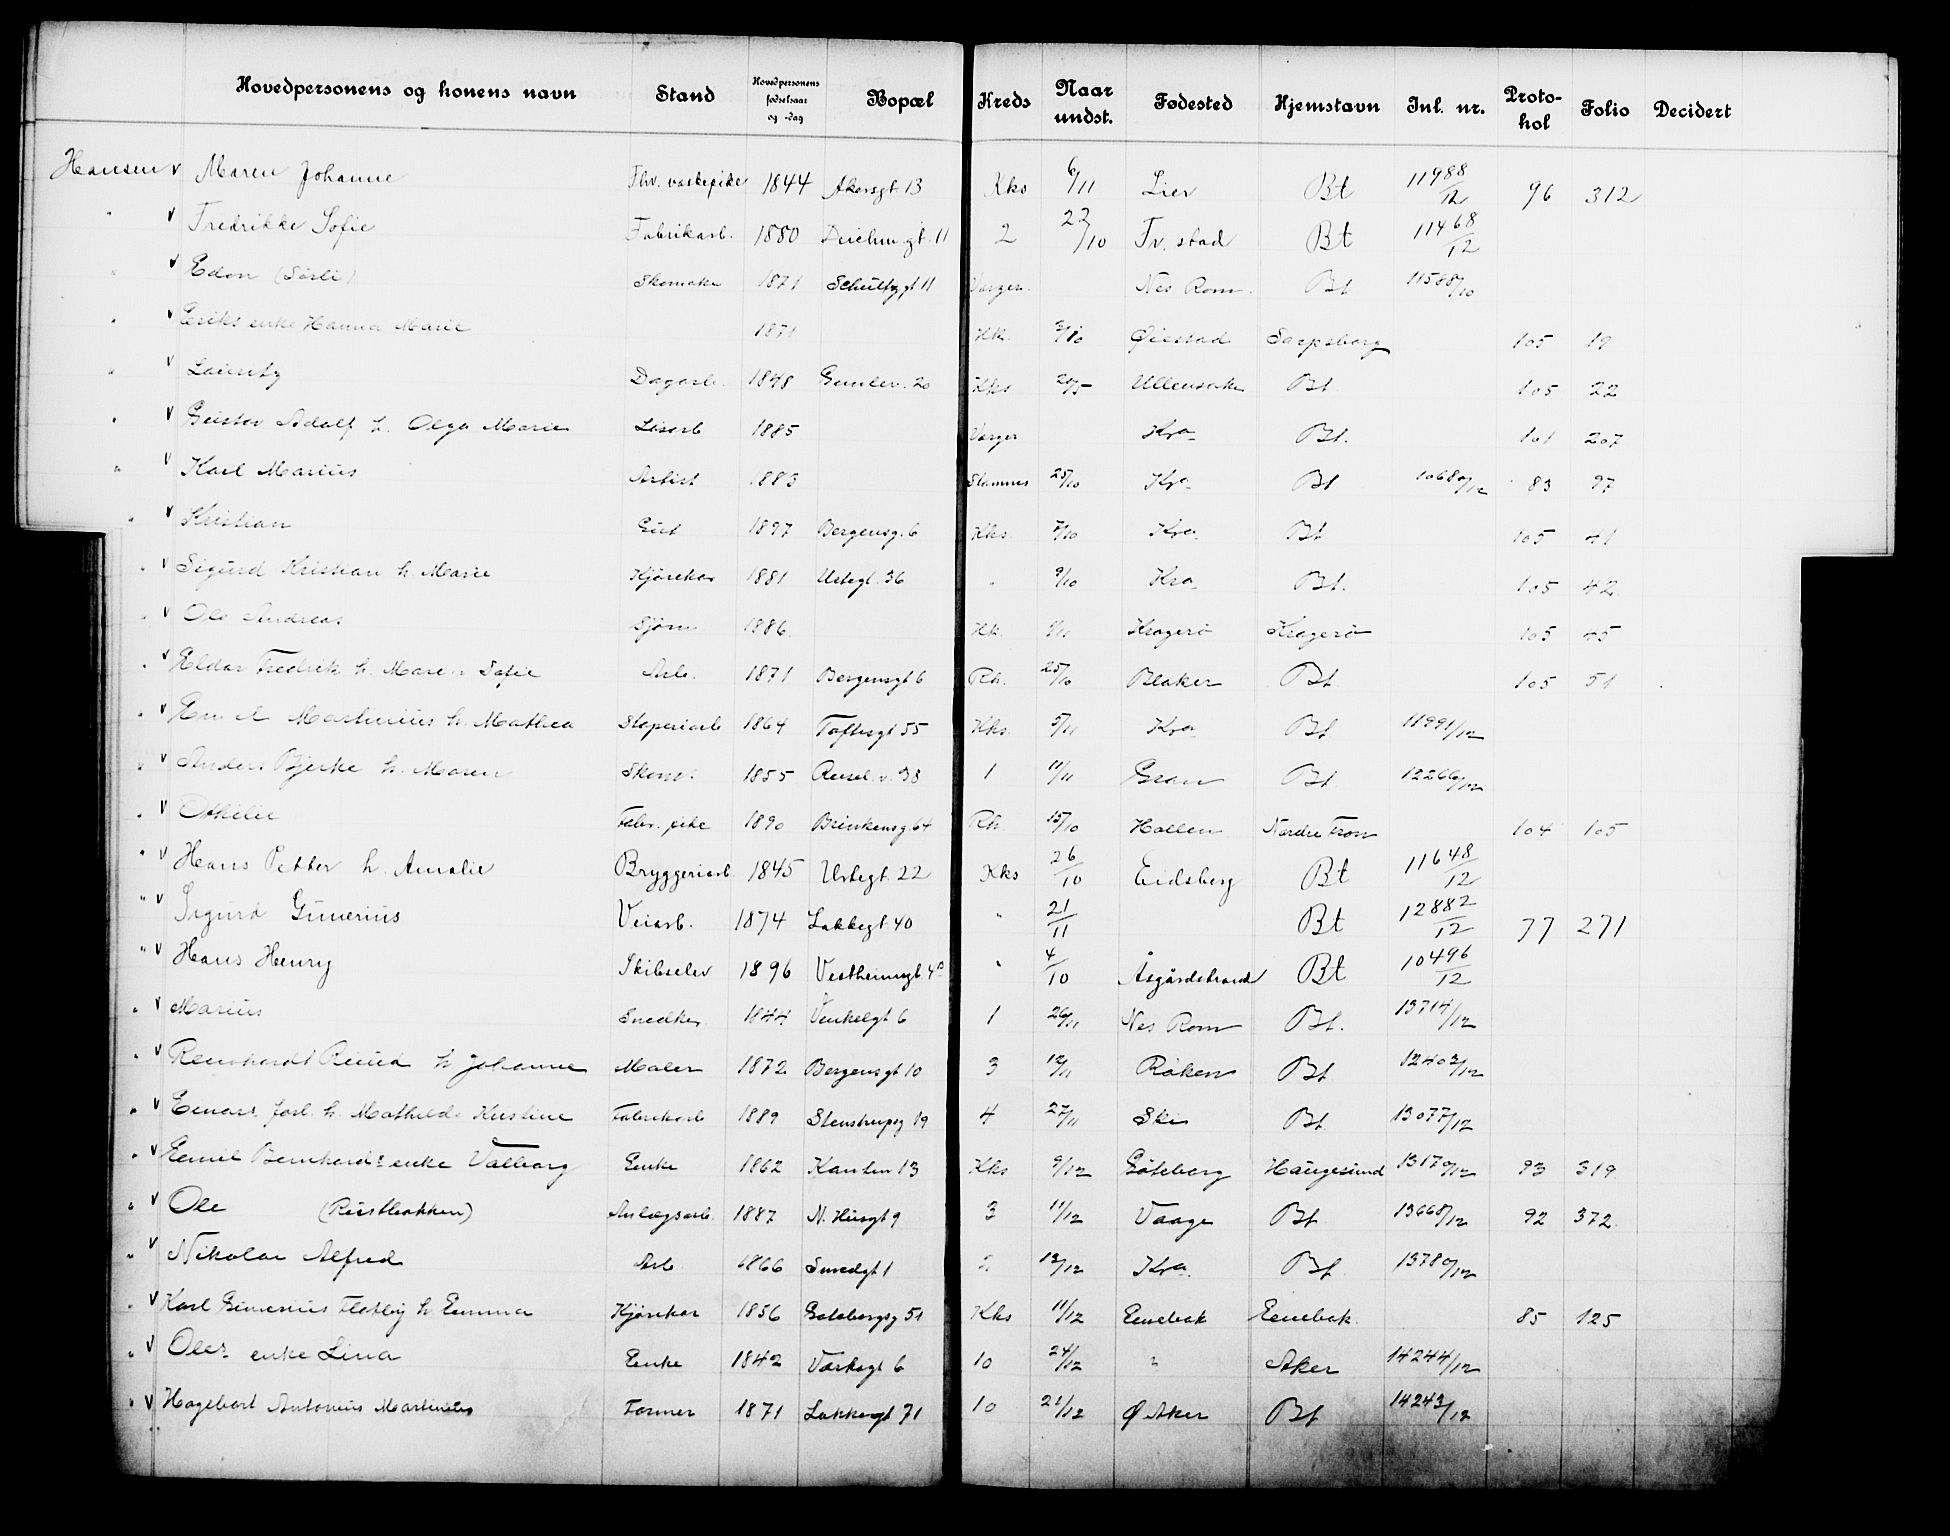 Hovedpersonens og konens navn Stand Hovedpersonens fødselsaar og -dag Bopæl Kreds Naar undst. Fødested Hjemstavn Inl. nr. Protokol Folio Decidert
Hansen v Maren Johanne Fhv. vaskepike 1844 Akersgt 13 Kks 6/11 Lier Bt 11988/12 96 312
" v Fredrikke Sofie Fabrikarb. 1880 Deichm.gt. 11 2 22/10 Fr. stad Bt 11468/12
" v Edon (Sörli) Skomaker 1871 Schultzgt 11 Varger. Nes Rom. Bt 11588/10
" v Eriks enke Hanna Marie 1871 Kk. Øiestad Sarpsborg 105 19
" v Lauritz Dagarb. 1848 Gunlev. 20 Kks 20/5 Ullensaker Bt. 105 22
" v Gustav Adolf h. Olga Marie Løsarb 1885 Varger Kra Bt. 101 207
" v Karl Marius Artist 1883 Stamnes 25/10 Kra Bt 10680/12 83 97
" v Kristian Gut 1897 Bergensg. 6 Kks. 7/10 Kra Bt 105 41
" v Sigurd Kristian h. Marie Kjörekar 1881 Urtegt. 36 " 9/10 Kra Bt. 105 42
" v Ole Andreas Sjöm 1886 Kk. 1/11 Kragerö Kragerö 105 45
" v Eldar Fredrik h. Maren Sofie Arb. 1871 Bergensgt 6 Rh. 25/10 Blaker Bt 105 51
" v Emil Martinius h. Mathea Støperiarb 1864 Toftesgt 55 Kks. 5/11 Kra Bt 11991/12
" v Anders Bjerke h. Maren Skom. 1855 v. 38 1 11/11 Gran Bt 12266/12
" v Othilie Fabr. pike 1890 Brinkensg. 64 Rh 15/10 Hollen Nordre Fron 104 105
" v Hans Petter h. Amalie Bryggeriarb. 1845 Urtegt. 22 Kks 26/10 Eidsberg Bt 11648/12
" v Sigurd Gunerius Veiarb. 1874 Lakkegt 40 " 21/11 Bt 12882/12 77 271
" v Hans Henry Skibselev 1896 Vestheimsgt 4B " 4/10 Åsgårdstrand Bt 10496/12
" v Marius Snedker 1844 Venkelgt 6 1 26/11 Nes Rom Bt. 13714/12
" v Reinhardt Ruud h Johanne Maler 1872 Bergensgt 10 3 12/11 Röken Bt 12403/12
" v Einar, forl. h. Mathilde Kristine Fabrikarb 1889 Stenstrupsg 19 4 27/11 Ski Bt 13077/12
" v Emil Bernhards enke Valborg Enke 1862 Kanten 13 Kks 9/12 Göteborg Haugesund 13170/12 93 319
" v Ole (Rustbakken) Anlægsarb. 1887 N. Husgt 9 3 11/12 Vaage Bt 13668/12 92 372
" v Nikolai Alfred Arb 1866 Smedgt 1 2 12/12 Kra. Bt 13780/12
" v Karl Gunerius Flatby h Emma Kjörekar 1856 Goteborgsg 51 Kks 11/12 Enebak Enebak. 85 125
" v Oles enke Lina Enke 1842 Varkegt 6 10 24/12 " Aker 14244/12
" v Hagebart Antonius Martinius Former 1871 Lakkegt 71 10 21/12 Ø Aker Bt 14243/12